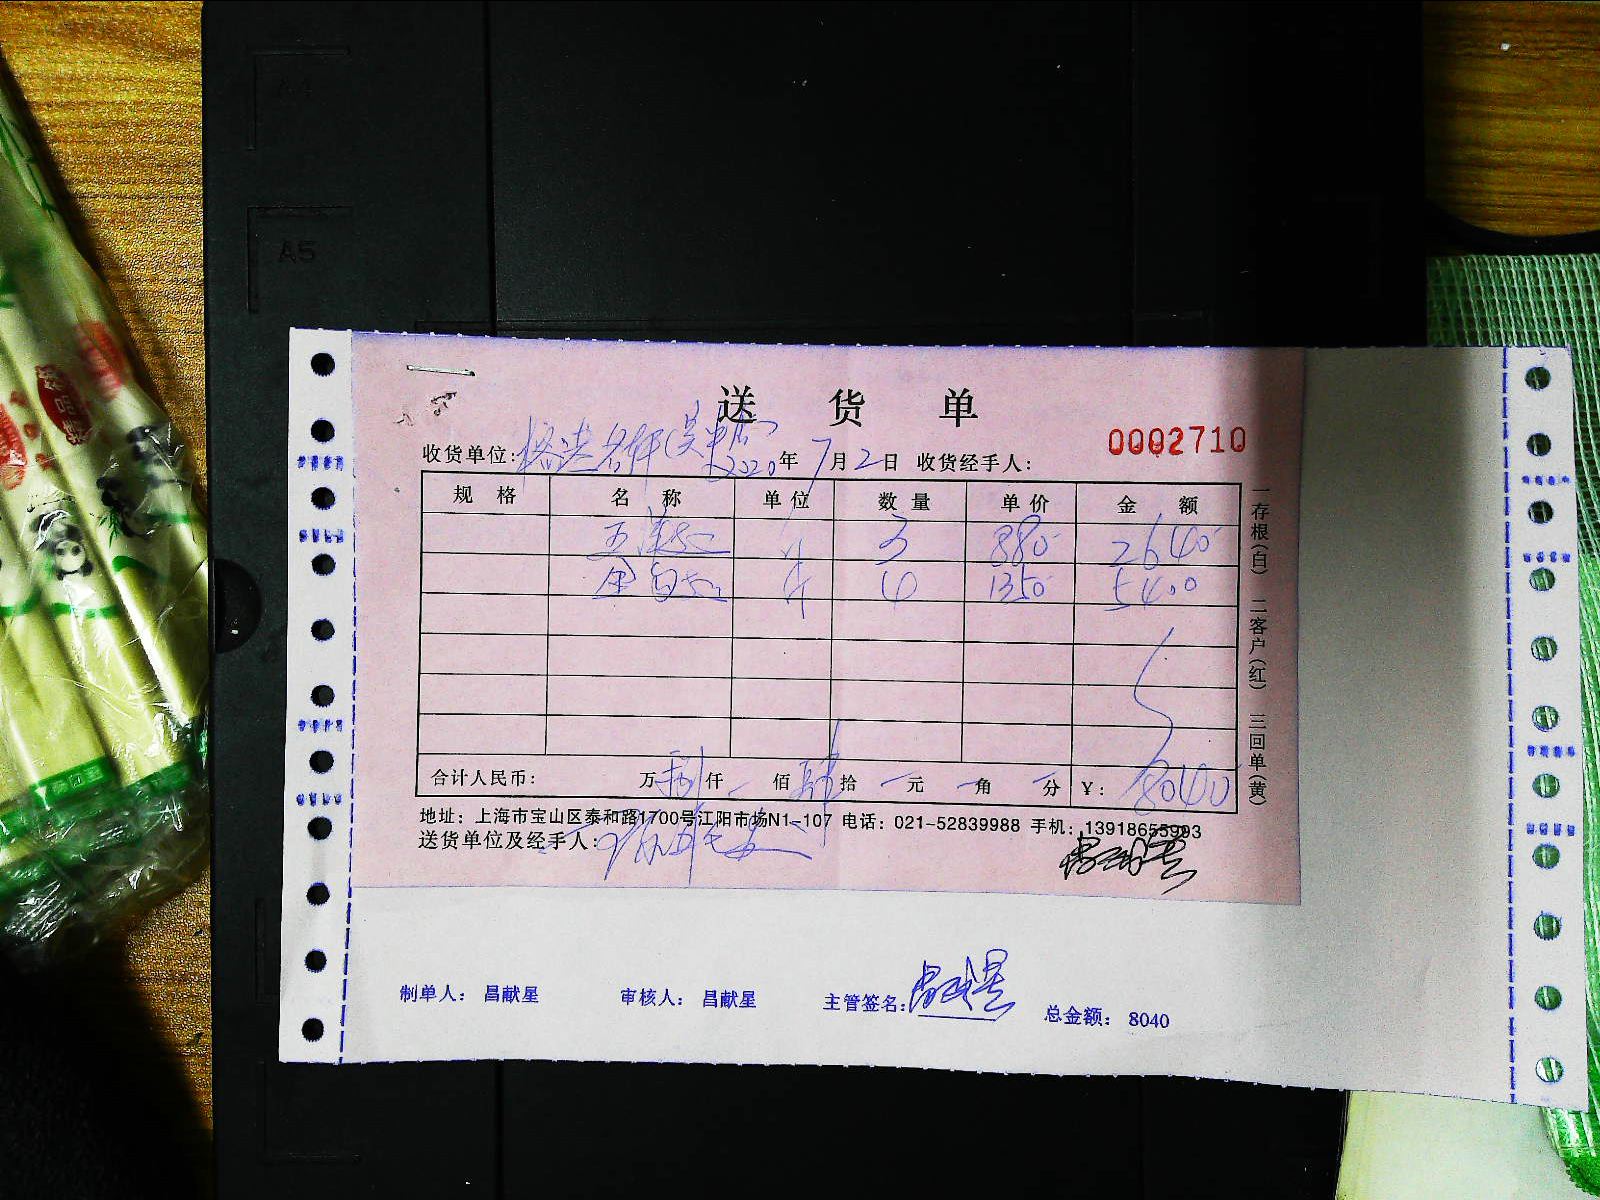 A4
A5
送 货 单
0002710
收货单位： 2020年7月2日 收货经手人：
规 格 名 称 单 位 数 量 单 价 金 额
五 斤 3 880 2640
斤 4 1350 5400
合计人民币： 万捌仟 佰肆拾 元 角 分 ￥：8040
地址：上海市宝山区泰和路1700号江阳市场N1-107 电话：021-52839988 手机：13918655993
送货单位及经手人：
一存根(白) 二客户(红) 三回单(黄)
制单人： 昌献星 审核人： 昌献星 主管签名：昌献星 总金额： 8040